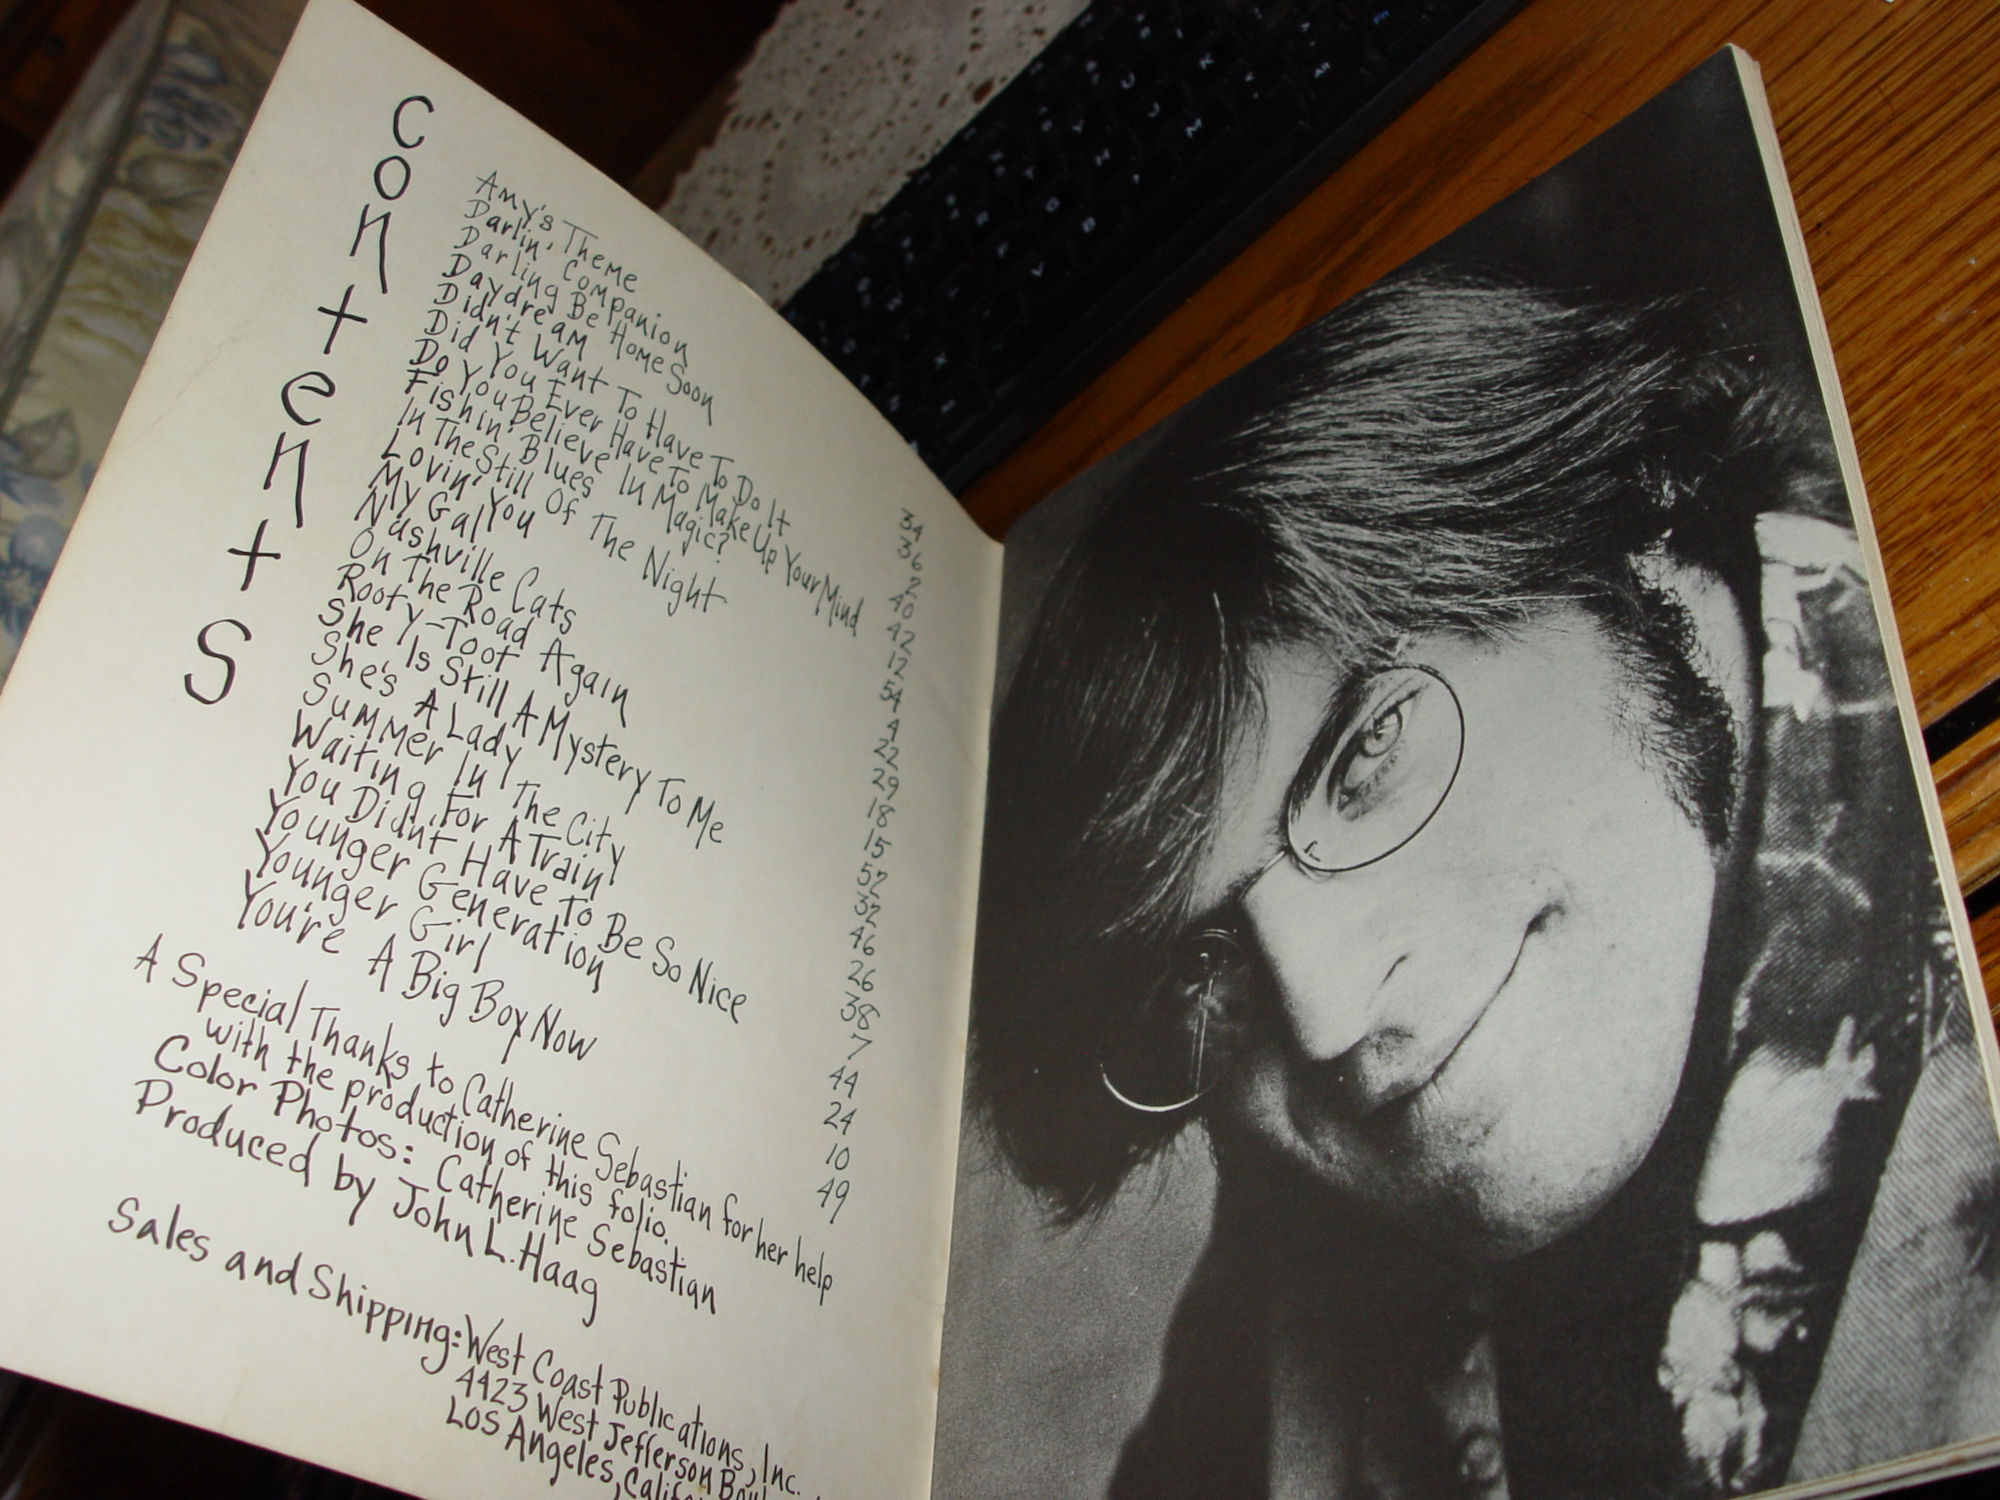 Contents
Amy's Theme 34
Darlin' Companion 36
Darling Be Home Soon 2
Daydream 40
Didn't Want To Have To Do It 42
Did You Ever Have To Make Up Your Mind 12
Do You Believe In Magic? 54
Fishin' Blues 4
In The Still Of The Night 22
Lovin' You 29
My Gal 18
Nashville Cats 15
On The Road Again 52
Rooty-Toot 32
She Is Still A Mystery To Me 46
She's A Lady 26
Summer In The City 38
Waiting For A Train 7
You Didn't Have To Be So Nice 44
Younger Generation 24
Younger Girl 10
You're A Big Boy Now 49
A Special Thanks to Catherine Sebastian for her help
with the production of this folio.
Color Photos: Catherine Sebastian
Produced by John L. Haag
Sales and Shipping: West Coast Publications, Inc.
4423 West Jefferson
Los Angeles,